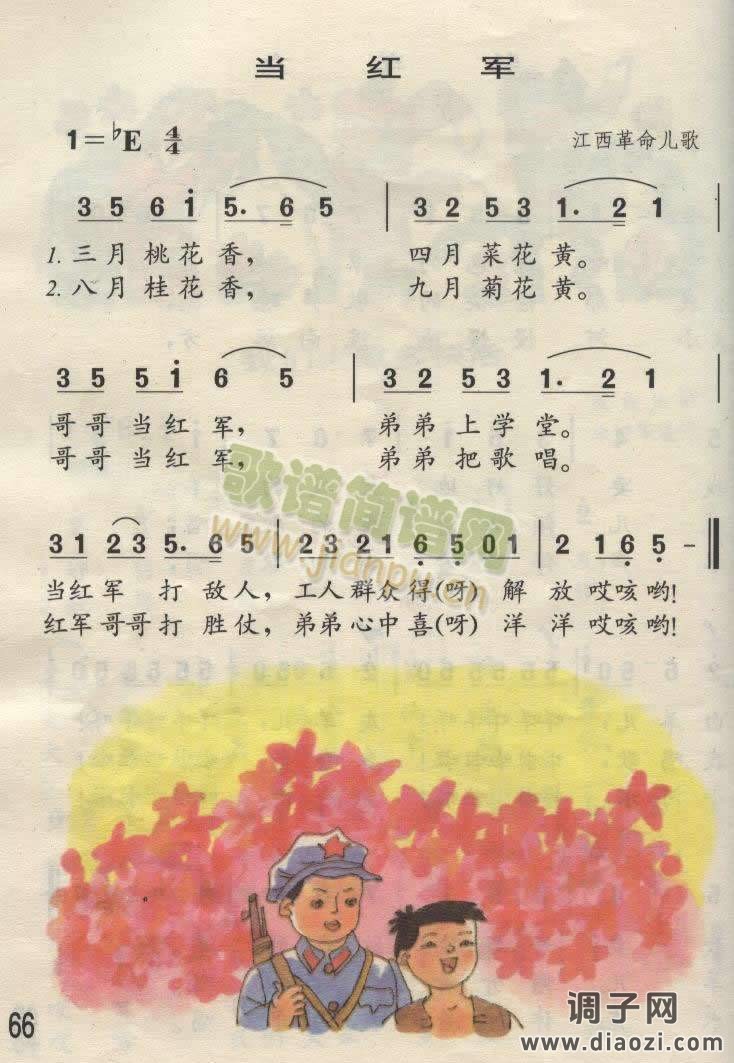 当红军
1=♭E 4/4 江西革命儿歌
3 5 6 i 5. 6 5 | 3 2 5 3 1. 2 1 |
1. 三月桃花香， 四月菜花黄。
2. 八月桂花香， 九月菊花黄。
3 5 5 i 6 5 | 3 2 5 3 1. 2 1 |
哥哥当红军， 弟弟上学堂。
哥哥当红军， 弟弟把歌唱。
3 1 2 3 5. 6 5 | 2 3 2 1 6 5 0 1 | 2 1 6 5 - ‖
当红军 打敌人，工人群众得(呀) 解放哎咳哟!
红军哥哥打胜仗，弟弟心中喜(呀) 洋洋哎咳哟!
歌谱简谱网
www.jianpu.cn
66
调子网
www.diaozi.com